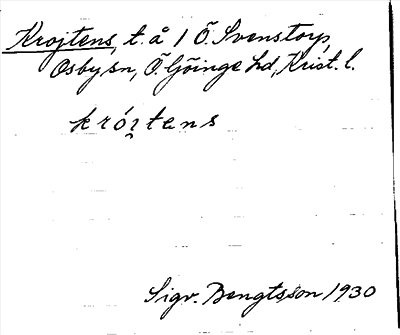 Krojtens, t. å 1 Ö. Svenstorp,
Osby sn, Ö. Göinge hd, Krist. l.
krói̯tens
Sigv. Bengtsson 1930